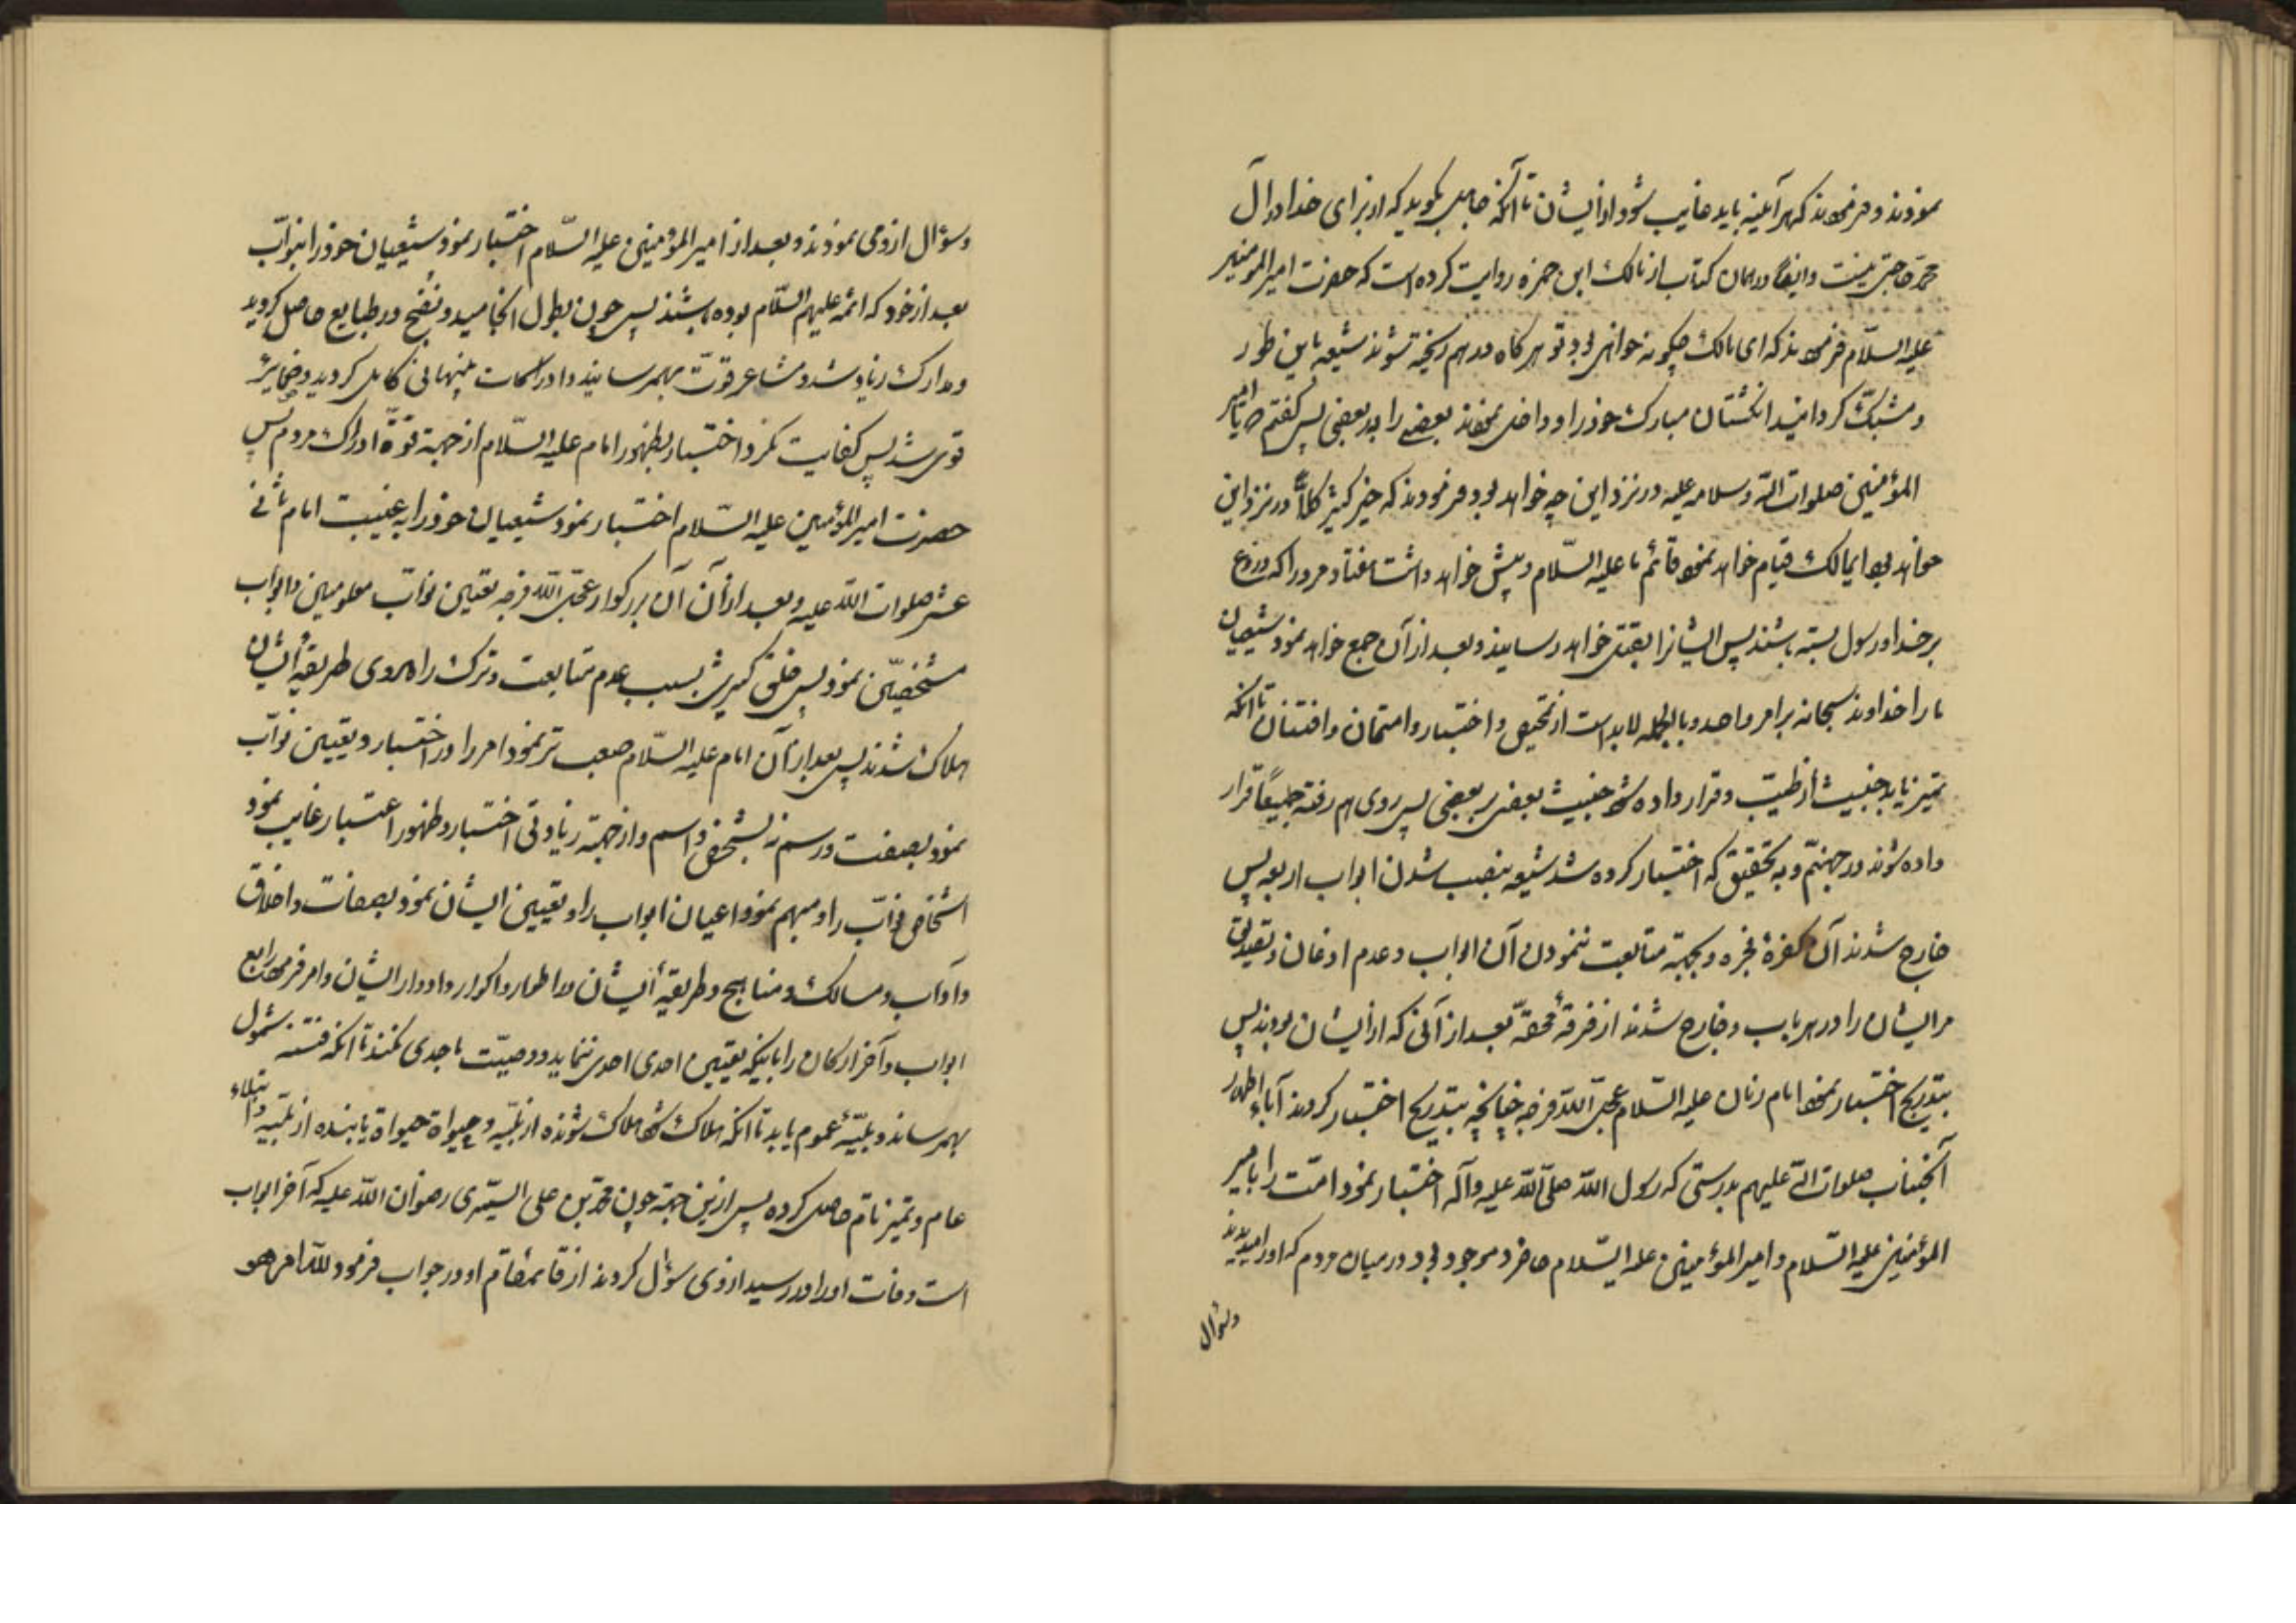 نمودند و فرمودند که هر آینه باید غایب شود از ایشان تا آنکه جاهل بگوید که از برای خدا در آل
محمد حاجتی نیست و ایضا در همان کتاب از مالک ابن حمزه روایت کرده است که حضرت امیر المومنین
علیه السلام فرمودند که ای مالک چگونه خواهی بود تو هر گاه در هم ریخته شوند شیعه باین طور
و مشبک گردانید انگشتان مبارک خود را و داخل نمود بعضی را بر بعضی پس گفتم یا امیر
المؤمنین صلوات الله و سلامه علیه در نزد این چه خواهد بود فرمودند که خیر کثیر کلا در نزد این
خواهد بود ایمالک قیام خواهد نمود قائم ما علیه السلام و پیش خواهد داشت هفتاد مرد را که دروغ
بر خدا و رسول بسته باشند پس ایشانرا بقتل خواهد رسانید و بعد از آن جمع خواهد نمود شیعیان
ما را خداوند سبحانه بر امر واحد و بالجمله لابد است از تمحیص و اختبار و امتحان و افتنان تا آنکه
تمیز یابد خبیث از طیب و قرار داده شود خبیث بعضی بر بعضی پس روی هم رفته جمیعاً قرار
داده شوند در جهنم و به تحقیق که اختبار کرده شد شیعه بنصب شدن ابواب اربعه پس
خارج شدند آن کفرۀ فجره و بجهة متابعت ننمودن آن ابواب و عدم اذعان و تصدیق
مر ایشان را در هر باب و خارج شدند از فرقۀ محقه بعد از آنی که از ایشان بودند پس
بتدریج اختبار نمود امام زمان علیه السلام عجل الله فرجه چنانچه بتدریج اختبار کردند آباء اطهار
آنجناب صلوات الله علیهم بدرستی که رسول الله صلی الله علیه و آله اختبار نمود امت را بامیر
المؤمنین علیه السلام و امیر المؤمنین علیه السلام حاضر و موجود بود در میان مردم که او را میدیدند
و سؤال
و سؤال از وی نمودند و بعد از امیر المؤمنین علیه السلام اختبار نمود شیعیان خود را بنواب
بعد از خود که ائمه علیهم السلام بوده باشند پس چون بطول انجامید و نضج در طبایع حاصل گردید
و مدارک زیاد شد و مشاعر قوت بهمرسانید و ادراکات پنهانی کامل گردید و ضمایر
قوی شد پس کفایت نکرد اختبار بظهور امام علیه السلام از جهة قوۀ ادراک مردم پس
حضرت امیر المؤمنین علیه السلام اختبار نمود شیعیان خود را به غیبت امام ثانی
عشر صلوات الله علیه و بعد از آن آن بزرگوار عجل الله فرجه تعیین نواب معلومین و ابواب
مشخصین نمود پس خلق کثیری بسبب عدم متابعت و ترک راه روی طریقۀ ایشان
هلاک شدند پس بعد از آن امام علیه السلام صعب تر نمود امر را در اختبار و تعیین نواب
نمود بصفت و رسم نه بشخص و اسم و از جهة زیادتی اختبار و ظهور اعتبار غایب نمود
اشخاص نواب را و مبهم نمود اعیان ابواب را و تعیین ایشان نمود بصفات و اخلاق
و آداب و مسالک و مناهج و طریقۀ ایشان و اطوار و اکوار و ادوار ایشان و امر فرمود رابع
ابواب و آخر ارکان را باینکه تعیین احدی احدی ننماید و وصیت باحدی نکند تا آنکه فتنه شمول
بهمرساند و بلیۀ عموم یابد تا آنکه هلاک شود هلاک شونده از بینه و حیوة حیوة یابنده از بینه و ابتلاء
عام و تمیز تام حاصل کرده پس از این جهة چون محمد بن علی السمری رضوان الله علیه که آخر ابواب
است وفات او را در رسید از وی سؤال کردند از قائمقام او در جواب فرمود لله امر هو